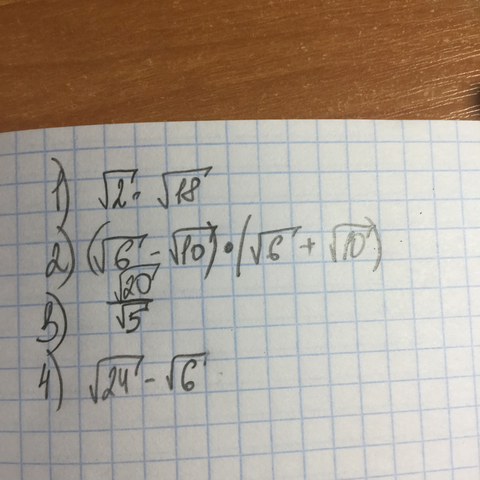 1) √2 · √18
2) (√6 - √10) · (√6 + √10)
3) √20/√5
4) √24 - √6